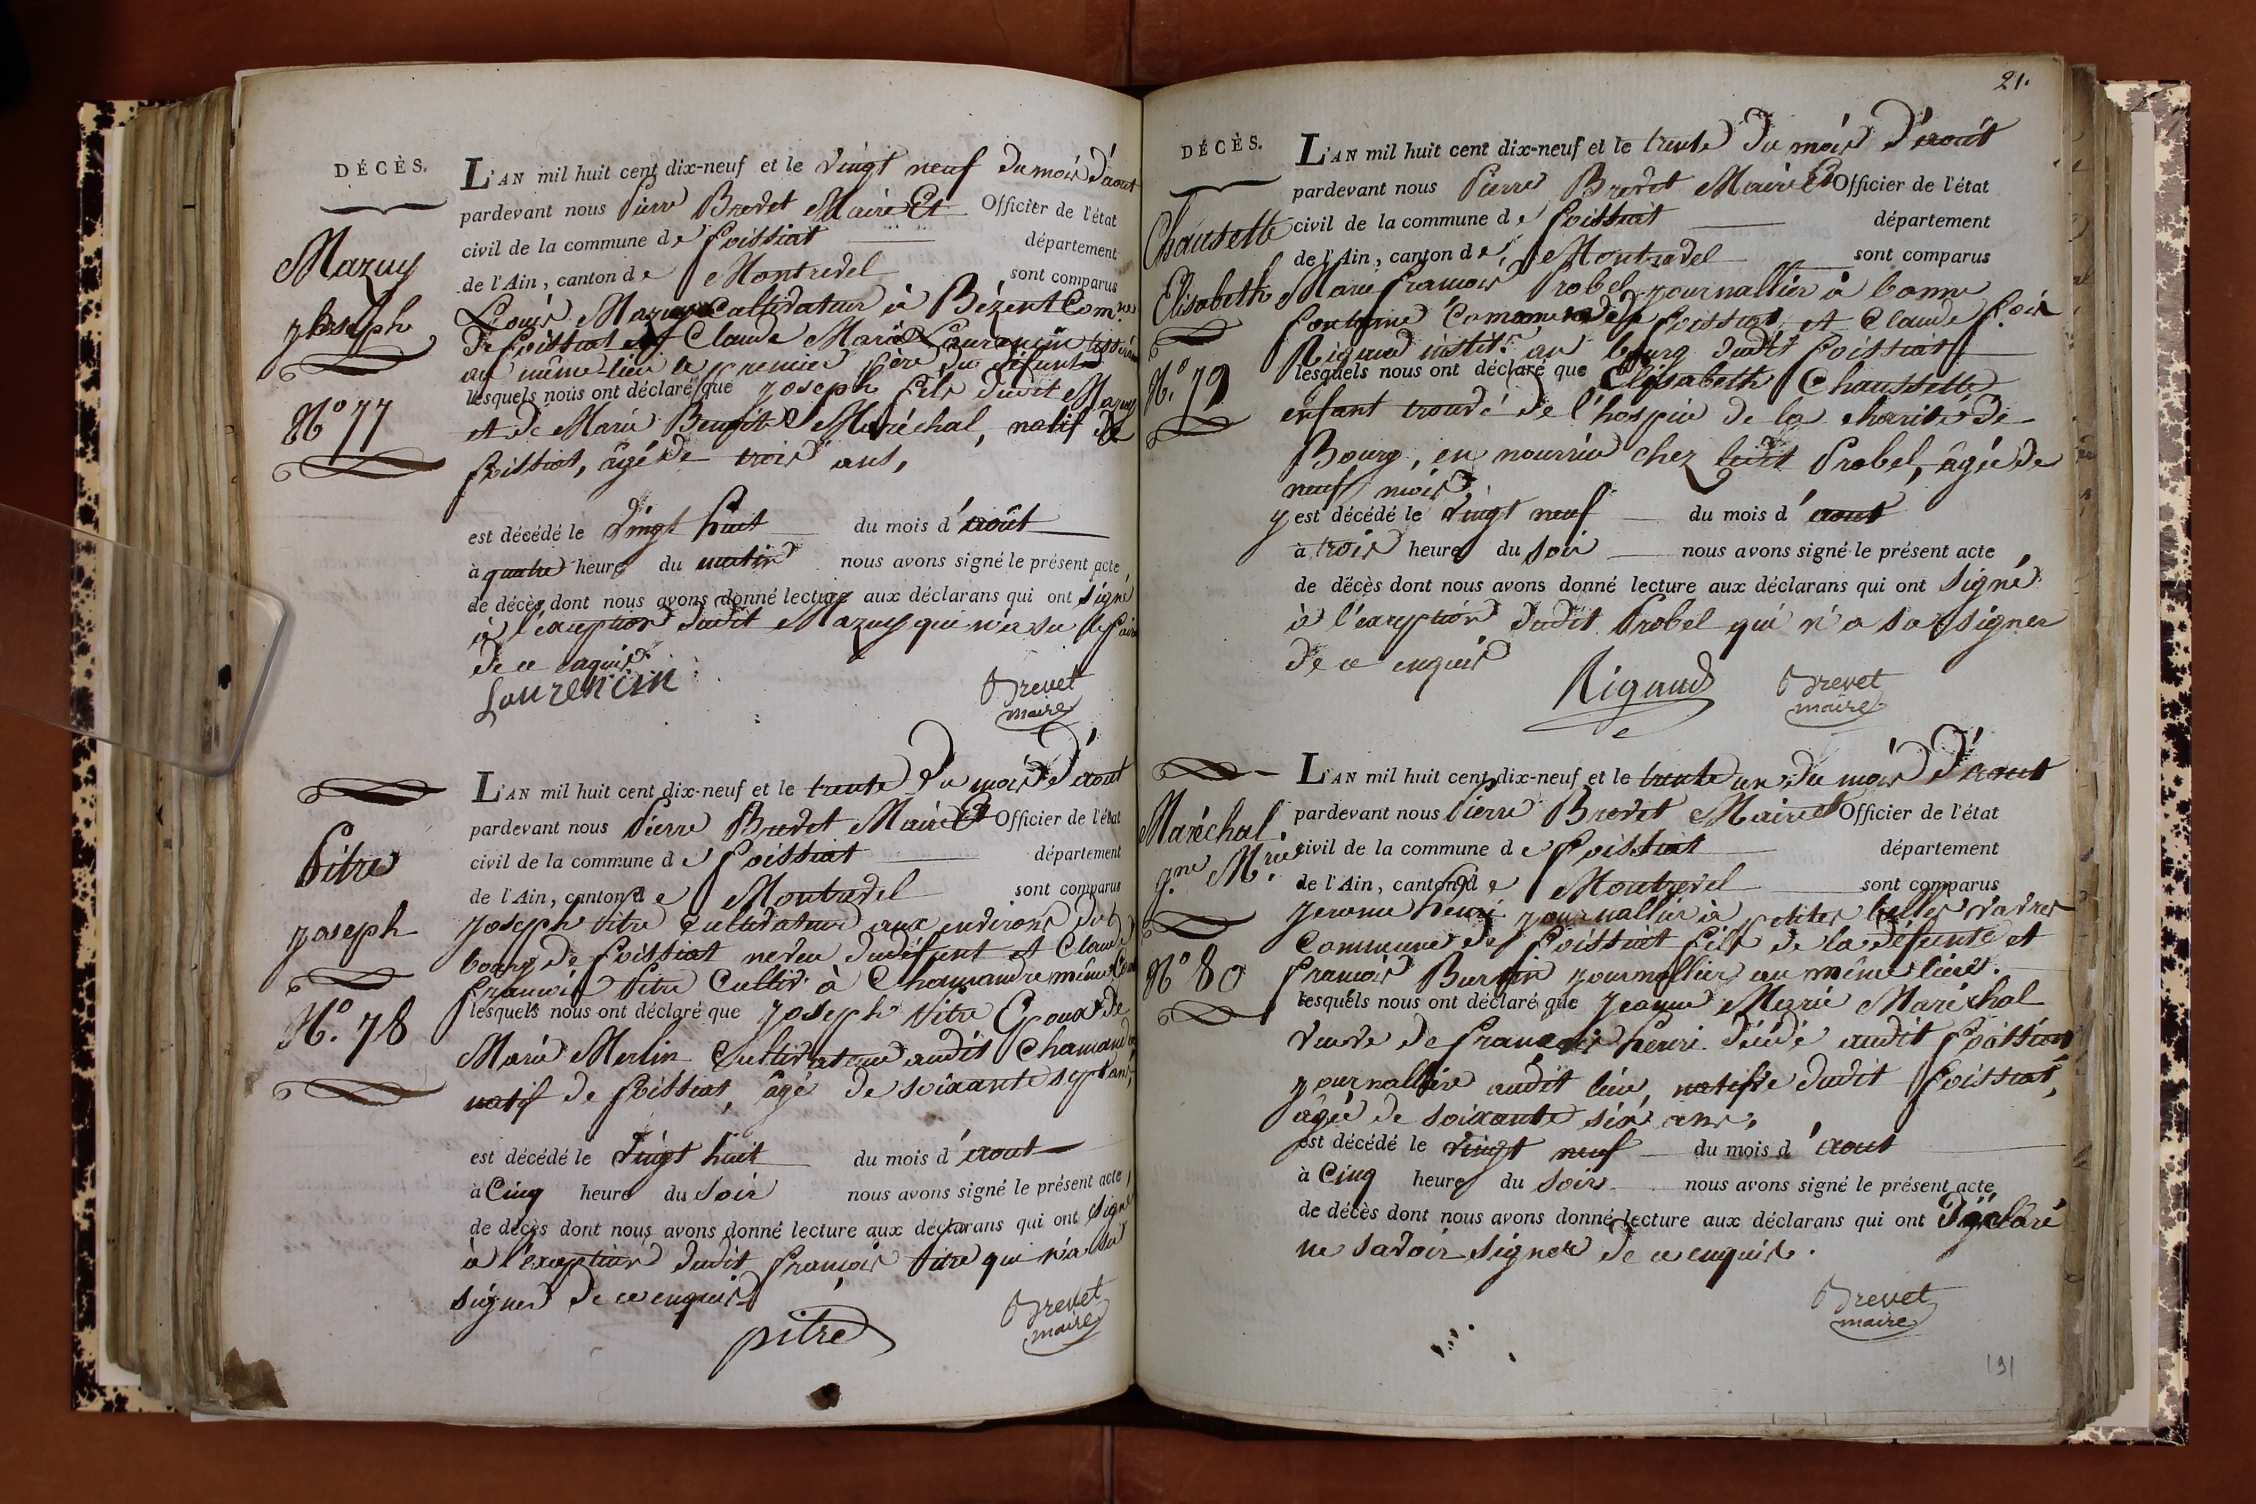 DÉCÈS.
Mazuy
Joseph
N.º 77
L'AN mil huit cent dix-neuf et le vingt neuf du mois d'aout
pardevant nous Pierre Brevet Maire Et Officier de l'état
civil de la commune de Foissiat département
de l'Ain, canton de Montrevel sont comparus
Louis Mazuy Cultivateur à Bézent Com.ne
de Foissiat et Claude Marie Laurencin
au même lieu le premier père du défunt
lesquels nous ont déclaré que Joseph fils dudit Mazuy
et de Marie Benoite Maréchal, natif de
Foissiat, âgé de trois ans,
est décédé le vingt huit du mois d'août
à quatre heures du matin nous avons signé le présent acte
de décès dont nous avons donné lecture aux déclarans qui ont signé
à l'exception dudit Mazuy qui n'a su le faire
de ce enquis.
Laurencin Brevet
maire
Pitre
Joseph
N.º 78
L'AN mil huit cent dix-neuf et le trente du mois d'aout
pardevant nous Pierre Brevet Maire Et Officier de l'état
civil de la commune de Foissiat département
de l'Ain, canton de Montrevel sont comparus
Joseph Pitre Cultivateur aux environs du
bourg de Foissiat neveu du défunt et Claude
François Pitre Cultiv. à Chamandre même
lesquels nous ont déclaré que Joseph Pitre Epoux de
Marie Merlin Cultivateur audit Chamandre
natif de Foissiat, âgé de soixante sept ans,
est décédé le vingt huit du mois d'aout
à Cinq heures du soir nous avons signé le présent acte,
de décès dont nous avons donné lecture aux déclarans qui ont signé
à l'exception dudit François Pitre qui n'a su
signer de ce enquis
pitre Brevet
maire
21.
DÉCÈS.
Chaussette
Elisabeth
N.º 79
L'AN mil huit cent dix-neuf et le trente du mois d'août
pardevant nous Pierre Brevet Maire Et Officier de l'état
civil de la commune de Foissiat département
de l'Ain, canton de Montrevel sont comparus
Marie François Probel journallier à bonne
fontaine Commune de Foissiat, et Claude
Rigaud instit.r au bourg dudit Foissiat
lesquels nous ont déclaré que Elisabeth Chaussette
enfant trouvé de l'hospice de la charité de
Bourg, en nourrice chez ledit Probel, âgée de
neuf mois,
y est décédé le vingt neuf du mois d'aout
à trois heures du soir nous avons signé le présent acte,
de décès dont nous avons donné lecture aux déclarans qui ont signé
à l'exception dudit Probel qui n'a su signer
de ce enquis
Rigaud Brevet
maire
Maréchal
J.ne M.rie
N.º 80
L'AN mil huit cent dix-neuf et le trente un du mois d'aout
pardevant nous Pierre Brevet Maire et Officier de l'état
civil de la commune de Foissiat département
de l'Ain, canton de Montrevel sont comparus
Jerome henri journallier à petites belles vavres
Commune de Foissiat fils de la défunte et
François journallier au même lieu.
lesquels nous ont déclaré que Jeanne Marie Maréchal
veuve de François henri décédé audit Foissiat
journallière audit lieu, native dudit Foissiat,
âgée de soixante six ans,
est décédé le vingt neuf du mois d'aout
à Cinq heures du soir nous avons signé le présent acte
de décès dont nous avons donné lecture aux déclarans qui ont Déclaré
ne savoir signer de ce enquis.
Brevet
maire